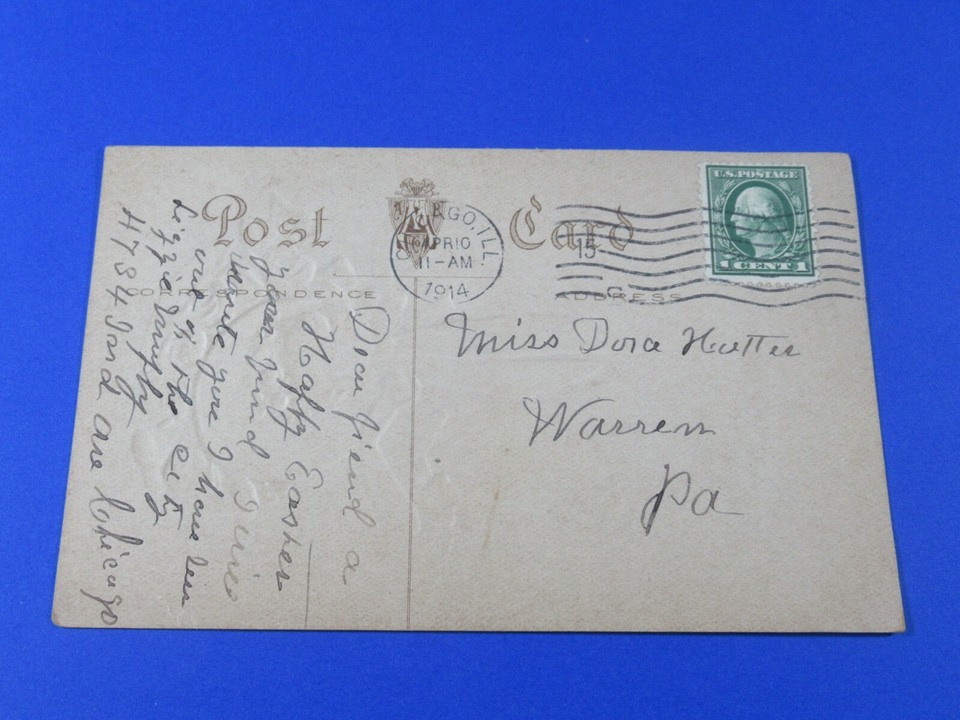 Post Card
CORRESPONDENCE
ADDRESS
CHICAGO, ILL.
APR 10
11-AM
1914
15
C
U.S. POSTAGE
1 CENT 1
Miss Dora Hutter
Warren
Pa
Dear friend a
Happy Easter
your friend
write you I have been
over the City
Lizzie Murphy
4734 Ind ave Chicago